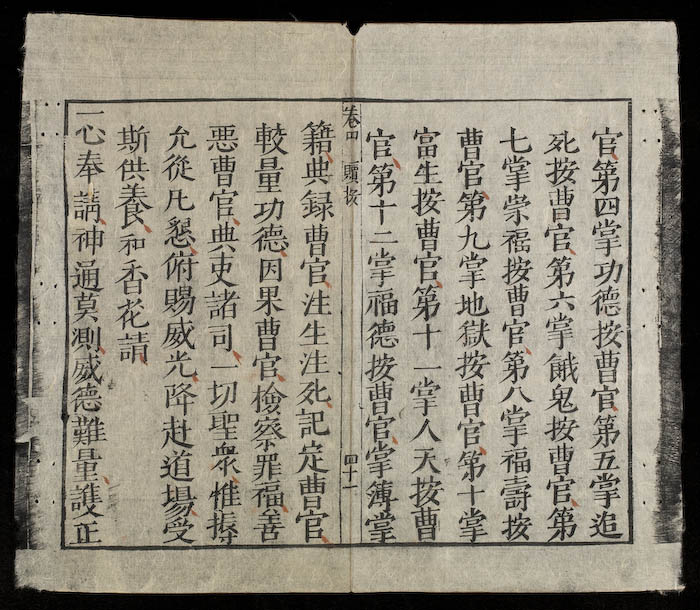 官第四掌功德按曹官第五掌追
死按曹官第六掌餓鬼按曹官第
七掌崇福按曹官第八掌福壽按
曹官第九掌地獄按曹官第十掌
富生按曹官第十一掌人天按曹
官第十二掌福德按曹官掌簿掌
卷四
籍典録曹官注生注死記定曹官
較量功德因果曹官檢察罪福善
惡曹官典吏諸司一切聖衆惟
允從凡懇俯賜威光降赴道場受
斯供養和香花請
一心奉請神通莫測威德難量護正